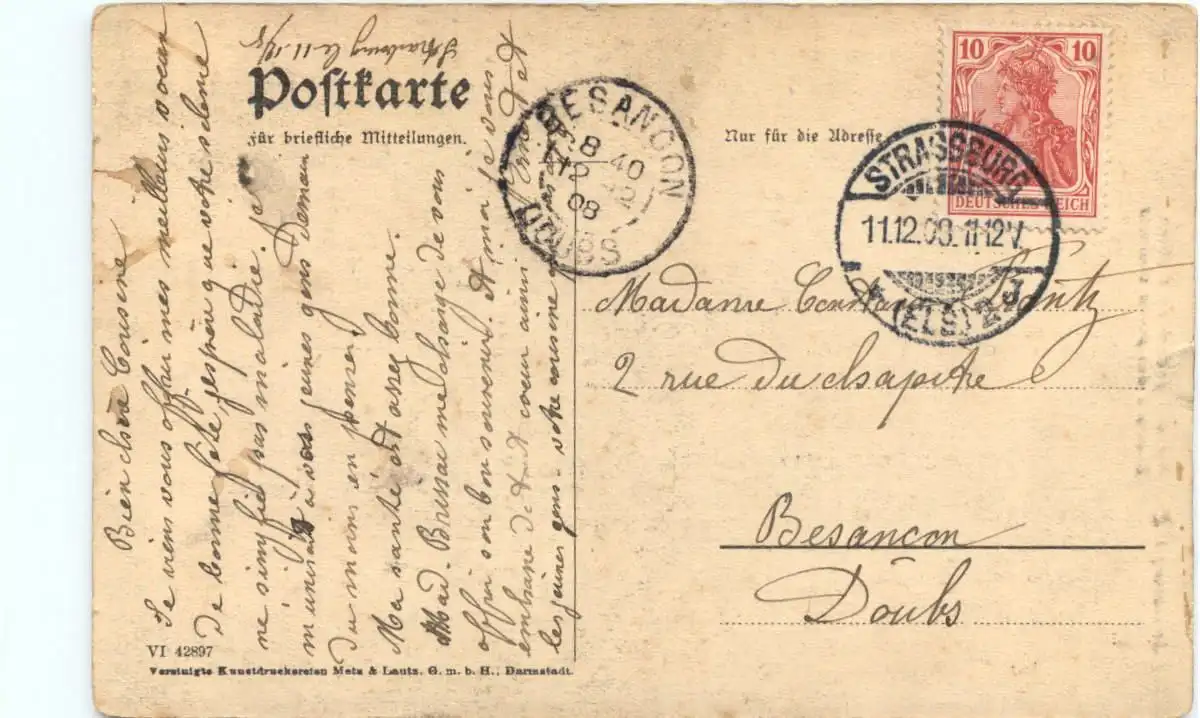 Strasbourg le 11.12/8
Postkarte
für briefliche Mitteilungen.
Nur für die Adresse
10 10
DEUTSCHES REICH
STRASSBURG
11.12.08. 11-12V.
(ELS.) 2. J
BESANCON
8 40
12
08
DOUBS
Bien chère Cousine
Je viens vous offrir mes meilleurs voeux
de bonne fête, j'espère que votre silence
ne signifie pas maladie. Je
à vos jeunes gens Demain
du moins en pensée.
Ma santé est assez bonne.
Mad. me charge de vous
offrir son bon souvenir. Et moi je vous
embrasse de tout coeur ainsi que
les jeunes gens. votre cousine
Madame
2 rue du chapitre
Besancon
Doubs
VI 42897
Vereinigte Kunstdruckereien Metz & Lautz, G. m. b. H., Darmstadt.